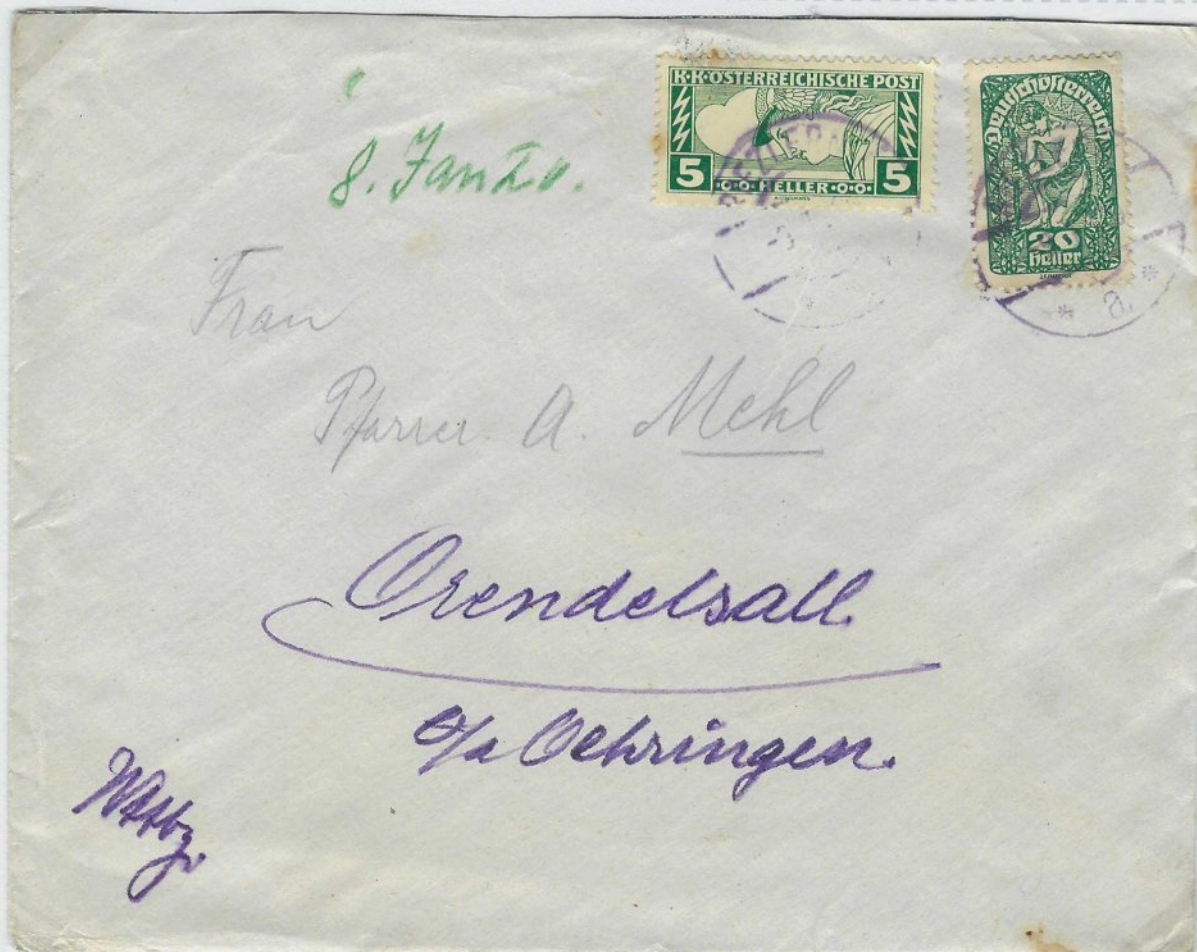 K·K·ÖSTERREICHISCHE POST
5 HELLER 5
Deutschösterreich
20
Heller
8. Jan 20.
Frau
Pfarrer A. Mehl
Orendelsall.
o/a Oehringen.
Wttbg.